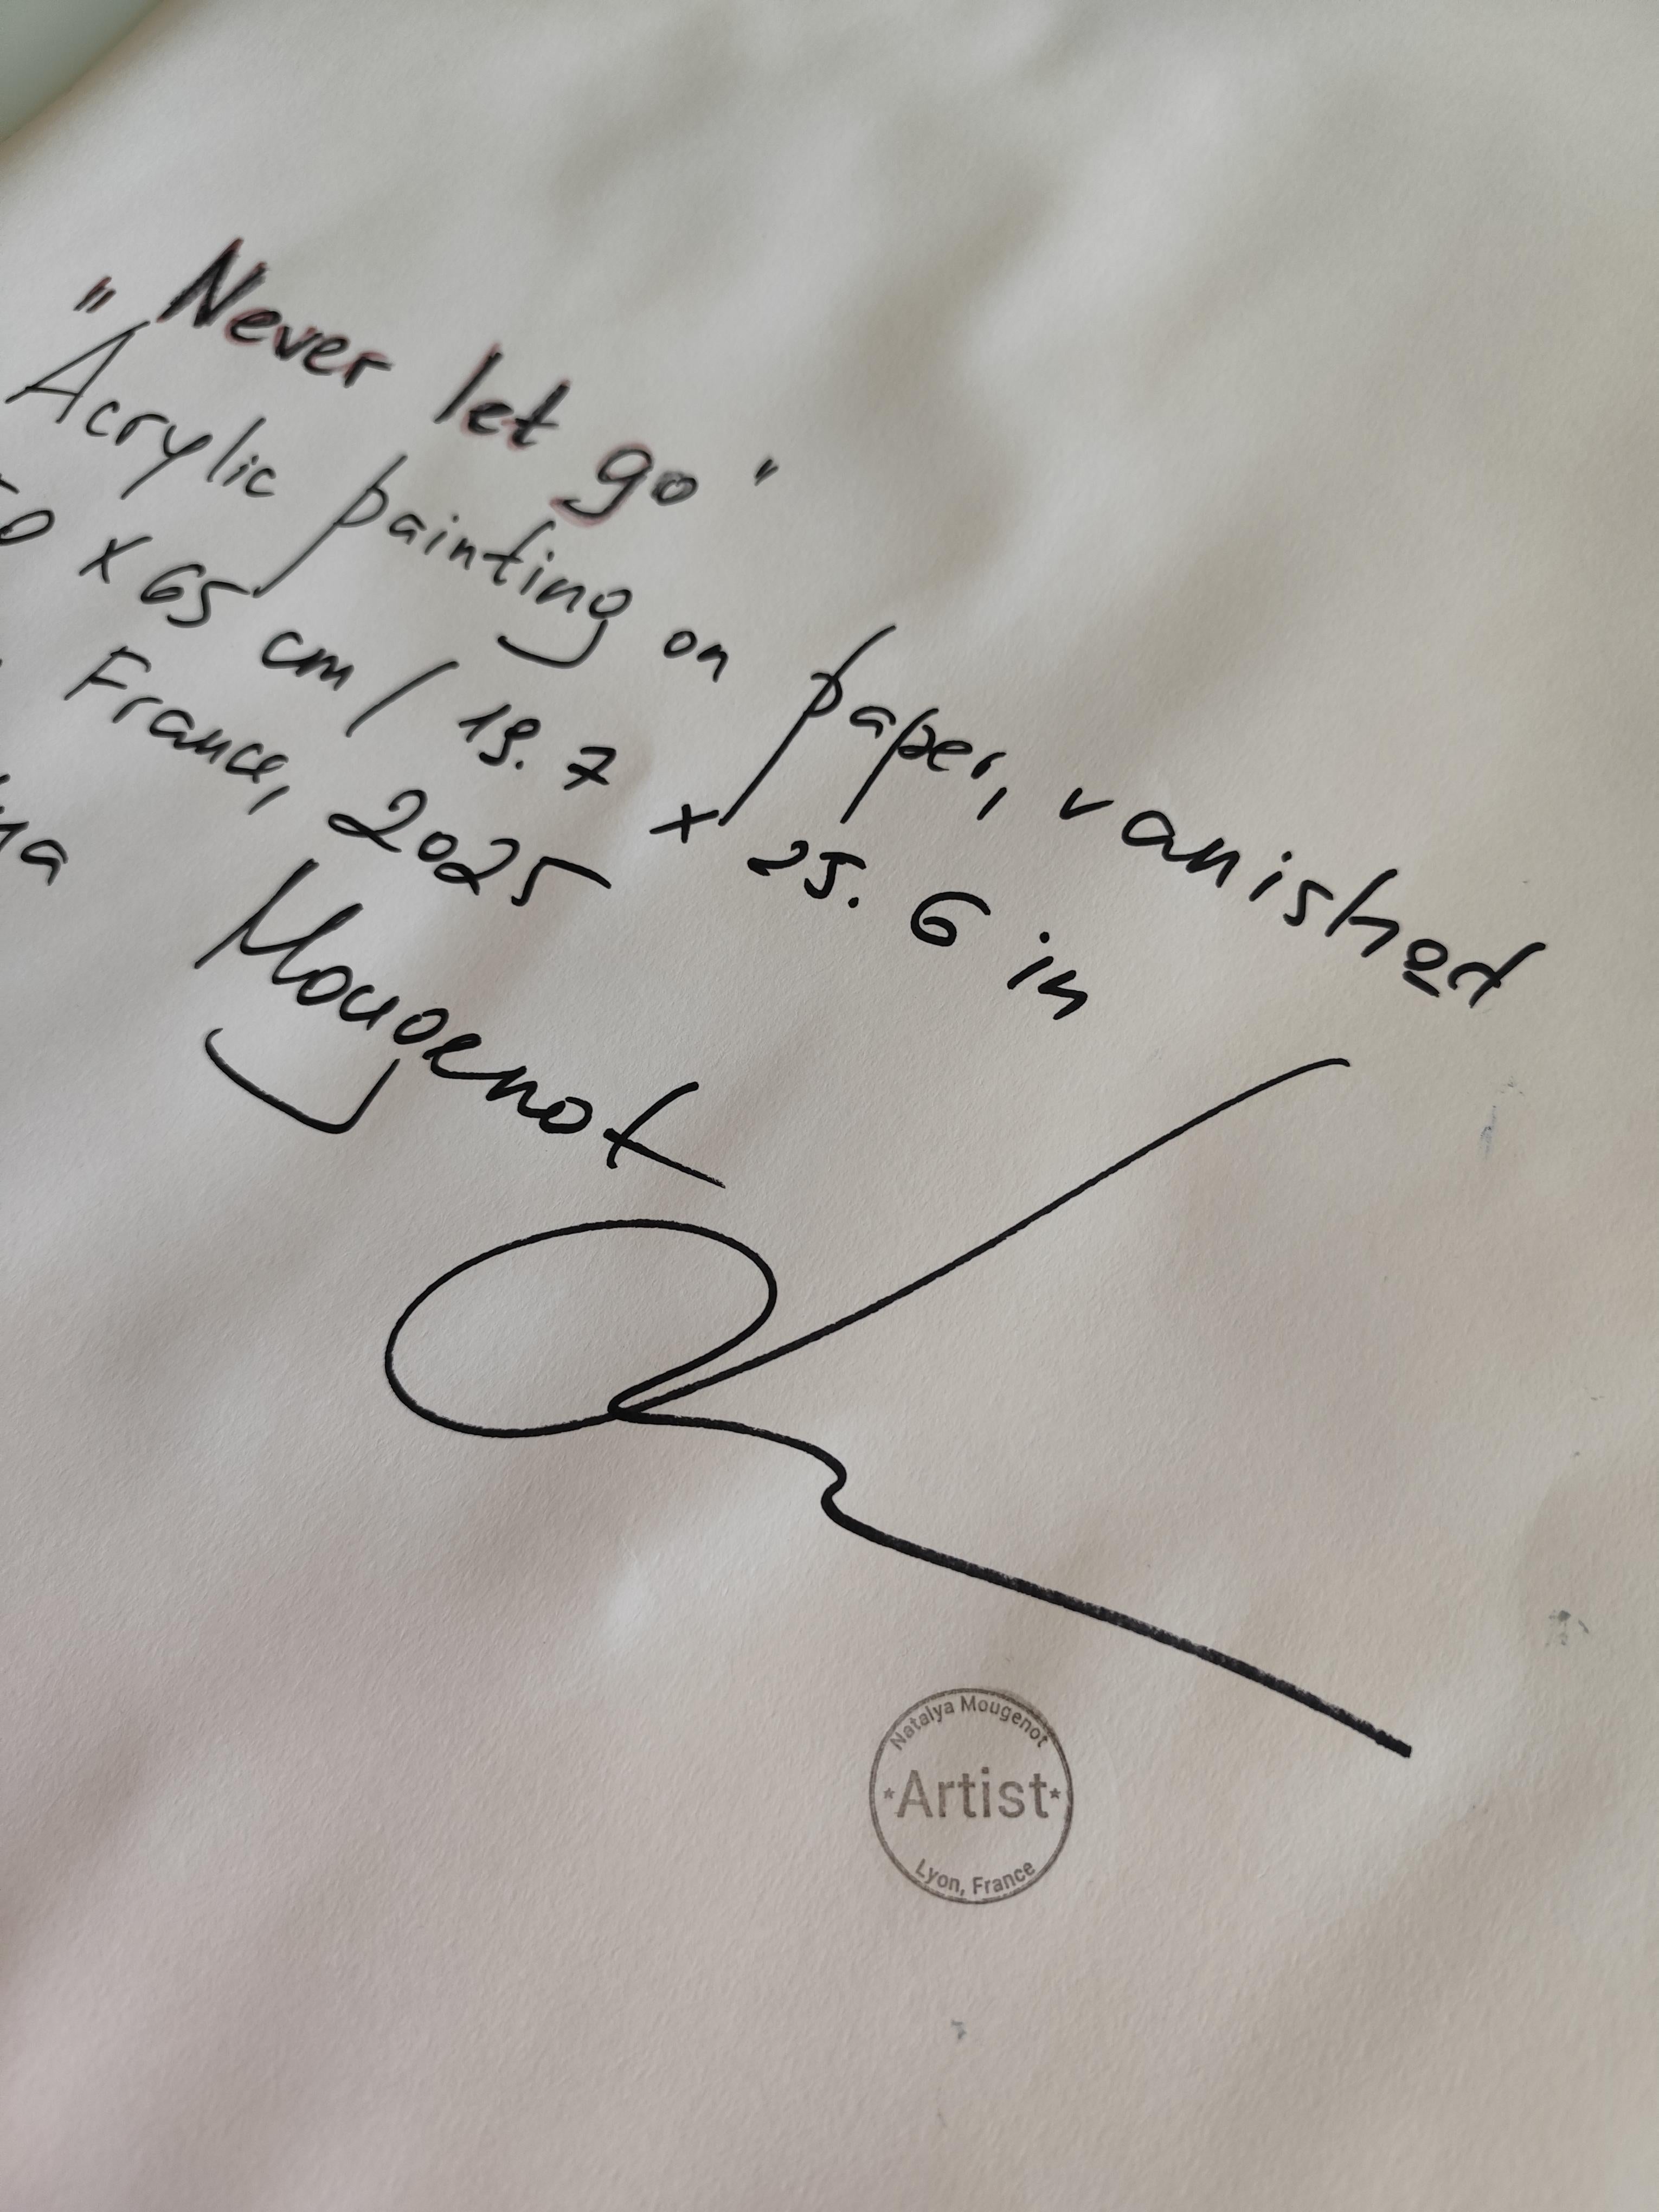 "Never let go"
Acrylic painting on paper, vanished
50 x 65 cm / 19.7 x 25.6 in
France, 2025
Mougenot
Natalya Mougenot
*Artist*
Lyon, France